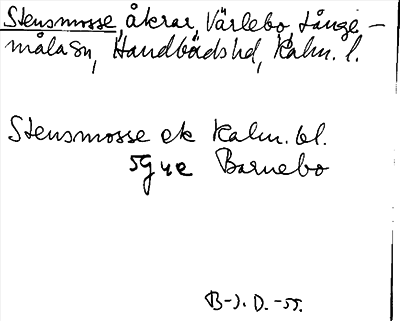 Stensmosse, åkrar, Värlebo, Långe-
måla sn, Handbörds hd, Kalm. l.
Stensmosse ek Kalm. bl.
5G 4e Barnebo
B-J. D. -55.